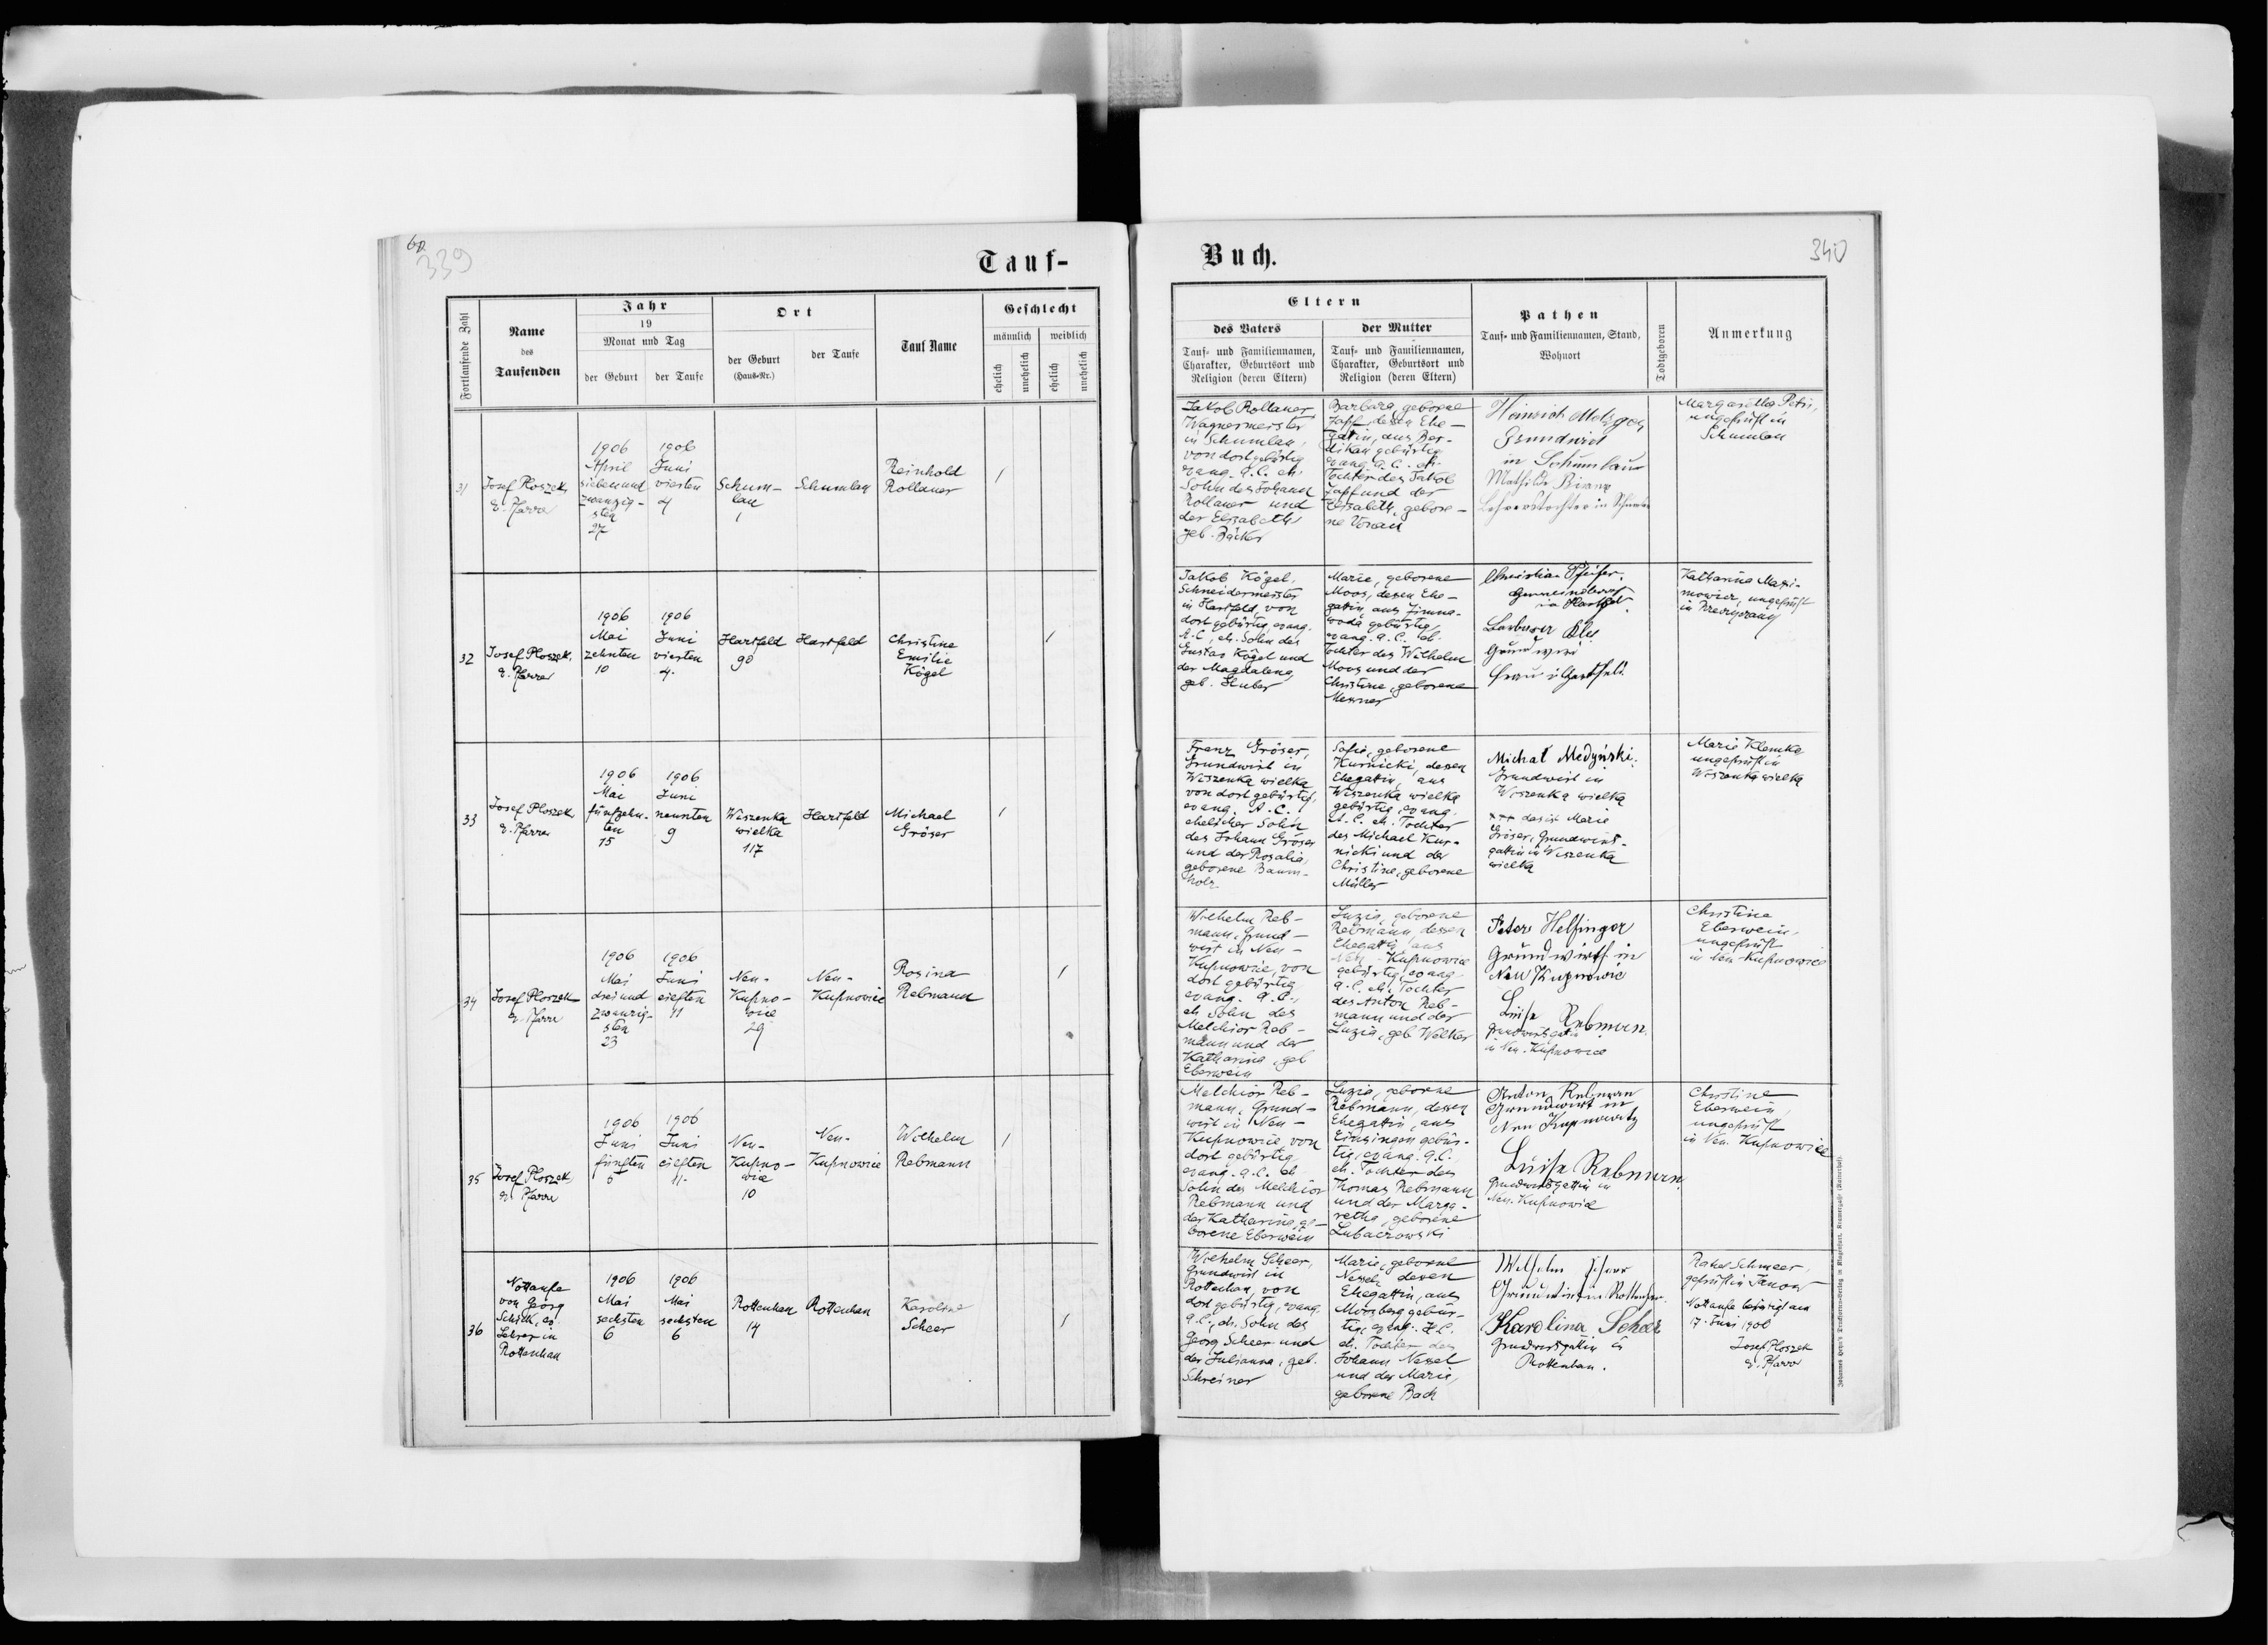 60.
339
Tauf-
Fortlaufende Zahl
Name
des
Taufenden
Jahr
19
Monat und Tag
der Geburt
der Taufe
Ort
der Geburt
(Haus-Nr.)
der Taufe
Tauf Name
Geschlecht
männlich
weiblich
ehelich
unehelich
ehelich
unehelich
31
Josef Ploszek
e. Pfarrer
1906
April
siebenund
zwanzig-
sten
27
1906
Juni
vierten
4
Schum-
lau
1
Schumlau
Reinhold
Rollauer
/
32
Josef Ploszek,
e. Pfarrer
1906
Mai
zehnten
10
1906
Juni
vierten
4.
Hartfeld
90
Hartfeld
Christine
Emilie
Kögel
/
33
Josef Ploszek
e. Pfarrer
1906
Mai
fünfzehn-
ten
15
1906
Juni
neunten
9
Wiszenka
wielka
117
Hartfeld
Michael
Gröser
/
34
Josef Ploszek
e. Pfarrer
1906
Mai
dreiund
zwanzig-
sten
23
1906
Juni
elften
11
Neu-
Kupno-
wice
29
Neu-
Kupnowice
Rosina
Rebmann
/
35
Josef Ploszek,
e. Pfarrer
1906
Juni
fünften
5
1906
Juni
elften
11.
Neu-
Kupno-
wice
10
Neu-
Kupnowice
Wilhelm
Rebmann
/
36
Nottaufe
von Georg
Schick, ev.
Lehrer in
Rottenhan
1906
Mai
sechsten
6
1906
Mai
sechsten
6
Rottenhan
14
Rottenhan
Karoline
Scheer
/
Buch.
340
Eltern
des Vaters
Tauf- und Familiennamen,
Charakter, Geburtsort und
Religion (deren Eltern)
der Mutter
Tauf- und Familiennamen,
Charakter, Geburtsort und
Religion (deren Eltern)
Pathen
Tauf- und Familiennamen, Stand,
Wohnort
Todtgeboren
Anmerkung
Jakob Rollauer
Wagnermeister
in Schumlau,
von dort gebürtig
evang. A.C. eh.
Sohn des Johann
Rollauer und
der Elisabeth
geb. Bäcker
Barbara, geborene
Zapf, dessen Ehe-
gattin, aus
gebürtig
evang. A.C. eh.
Tochter des Jakob
Zapf und der
Elisabeth, gebore-
ne
Heinrich Metzger
Grundwirt
in Schumlau
Mathilde
Lehrerstochter in Schumlau
Margaretha Petri,
ungeprüft in
Schumlau
Jakob Kögel,
Schneidermeister
in Hartfeld, von
dort gebürtig evang.
A.C., eh. Sohn des
Gustav Kögel und
der Magdalena
geb. Huber
Marie, geborene
Moos, dessen Ehe-
gattin, aus Zimna-
woda gebürtig,
evang. A.C. eh.
Tochter des Wilhelm
Moos und der
Christine, geborene
Messner
Christian Pfeifer,
in Hartfeld.
Barbara Klee
Grundwirt
frau i Hartfeld
Katharina Maxi-
mowicz, ungeprüft
in
Franz Gröser,
Grundwirt in
Wiszenka wielka
von dort gebürtig,
evang. A.C.
ehelicher Sohn
des Johann Gröser
und der Rosalia,
geborene Baum-
holz.
Sofie, geborene
Kurnicki, dessen
Ehegattin, aus
Wiszenka wielka
gebürtig, evang.
A.C. eh. Tochter
des Michael Kur-
nicki und der
Christine, geborene
Müller
Michał Medyński.
Grundwirt in
Wiszenka wielka
+++ das ist Marie
Gröser, Grundwirts-
gattin in Wiszenka
wielka
Marie Klemka
ungeprüft in
Wiszenka wielka
Wilhelm Reb-
mann, Grund-
wirt in Neu-
Kupnowice, von
dort gebürtig
evang. A.C.,
eh Sohn des
Melchior Reb-
mann und der
Katharina, geb
Eberwein
Luzia, geborene
Rebmann, dessen
Ehegattin, aus
Neu-Kupnowice
gebürtig, evang.
A.C. eh. Tochter
des Anton Reb-
mann und der
Luzia, geb. Welker
Peter Helfinger
Grundwirth in
Neu Kupnowic
Luise Rebman.
Grundwirtsgattin
in Neu-Kupnowice
Christina
Eberwein,
ungeprüft
in Neu-Kupnowice
Melchior Reb-
mann, Grund-
wirt in Neu-
Kupnowice, von
dort gebürtig,
evang. A.C. eh
Sohn des Melchior
Rebmann und
der Katharina, ge-
borene Eberwein
Luzia, geborene
Rebmann, dessen
Ehegattin, aus
Einsingen gebür-
tig, evang. A.C.
eh. Tochter des
Thomas Rebmann
und der Marga-
retha, geborene
Lubaczowski
Anton Rebman
Grundwirt in
Neu Kupnowitz
Luise Rebman.
Grundwirtsgattin in
Neu-Kupnowice
Christine
Eberwein,
ungeprüft
in Neu Kupnowice
Wilhelm Scheer,
Grundwirt in
Rottenhan, von
dort gebürtig, evang.
A.C., eh. Sohn des
Georg Scheer und
der Julianna, geb.
Schreiner
Marie, geborene
Nessel, dessen
Ehegattin, aus
gebür-
tig, evang. H.C.
eh. Tochter des
Johann Nessel
und der Marie,
geborene Bach
Wilhelm Scheer
Grundwirt in Rottenhan.
Karolina Scheer
Grundwirtsgattin in
Rottenhan.
Schmeer,
geprüft in Janow
Nottaufe bestätigt am
17. Juni 1906
Josef Ploszek
e. Pfarrer